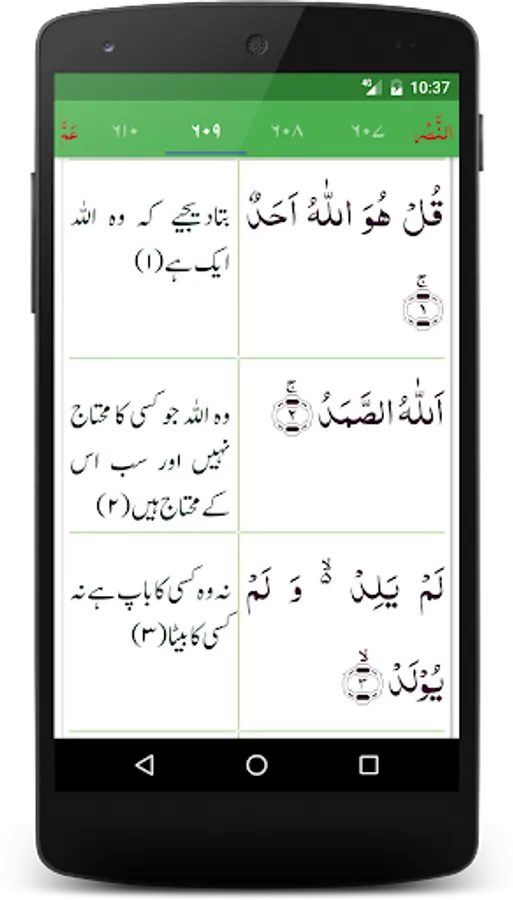 4G 10:37
النَّصْر ٦٠٧ ٦٠٨ ٦٠٩ ٦١٠ عَمَّ
قُلْ هُوَ اللّٰهُ اَحَدٌ
ۚ ١
بتادیجیے کہ وہ اللہ
ایک ہے (١)
اَللّٰهُ الصَّمَدُ ۚ ٢
وہ اللہ جو کسی کا محتاج
نہیں اور سب اس
کے محتاج ہیں (٢)
لَمْ يَلِدْ ۙ۬ وَ لَمْ
يُوْلَدْ ۙ ٣
نہ وہ کسی کا باپ ہے نہ
کسی کا بیٹا (٣)